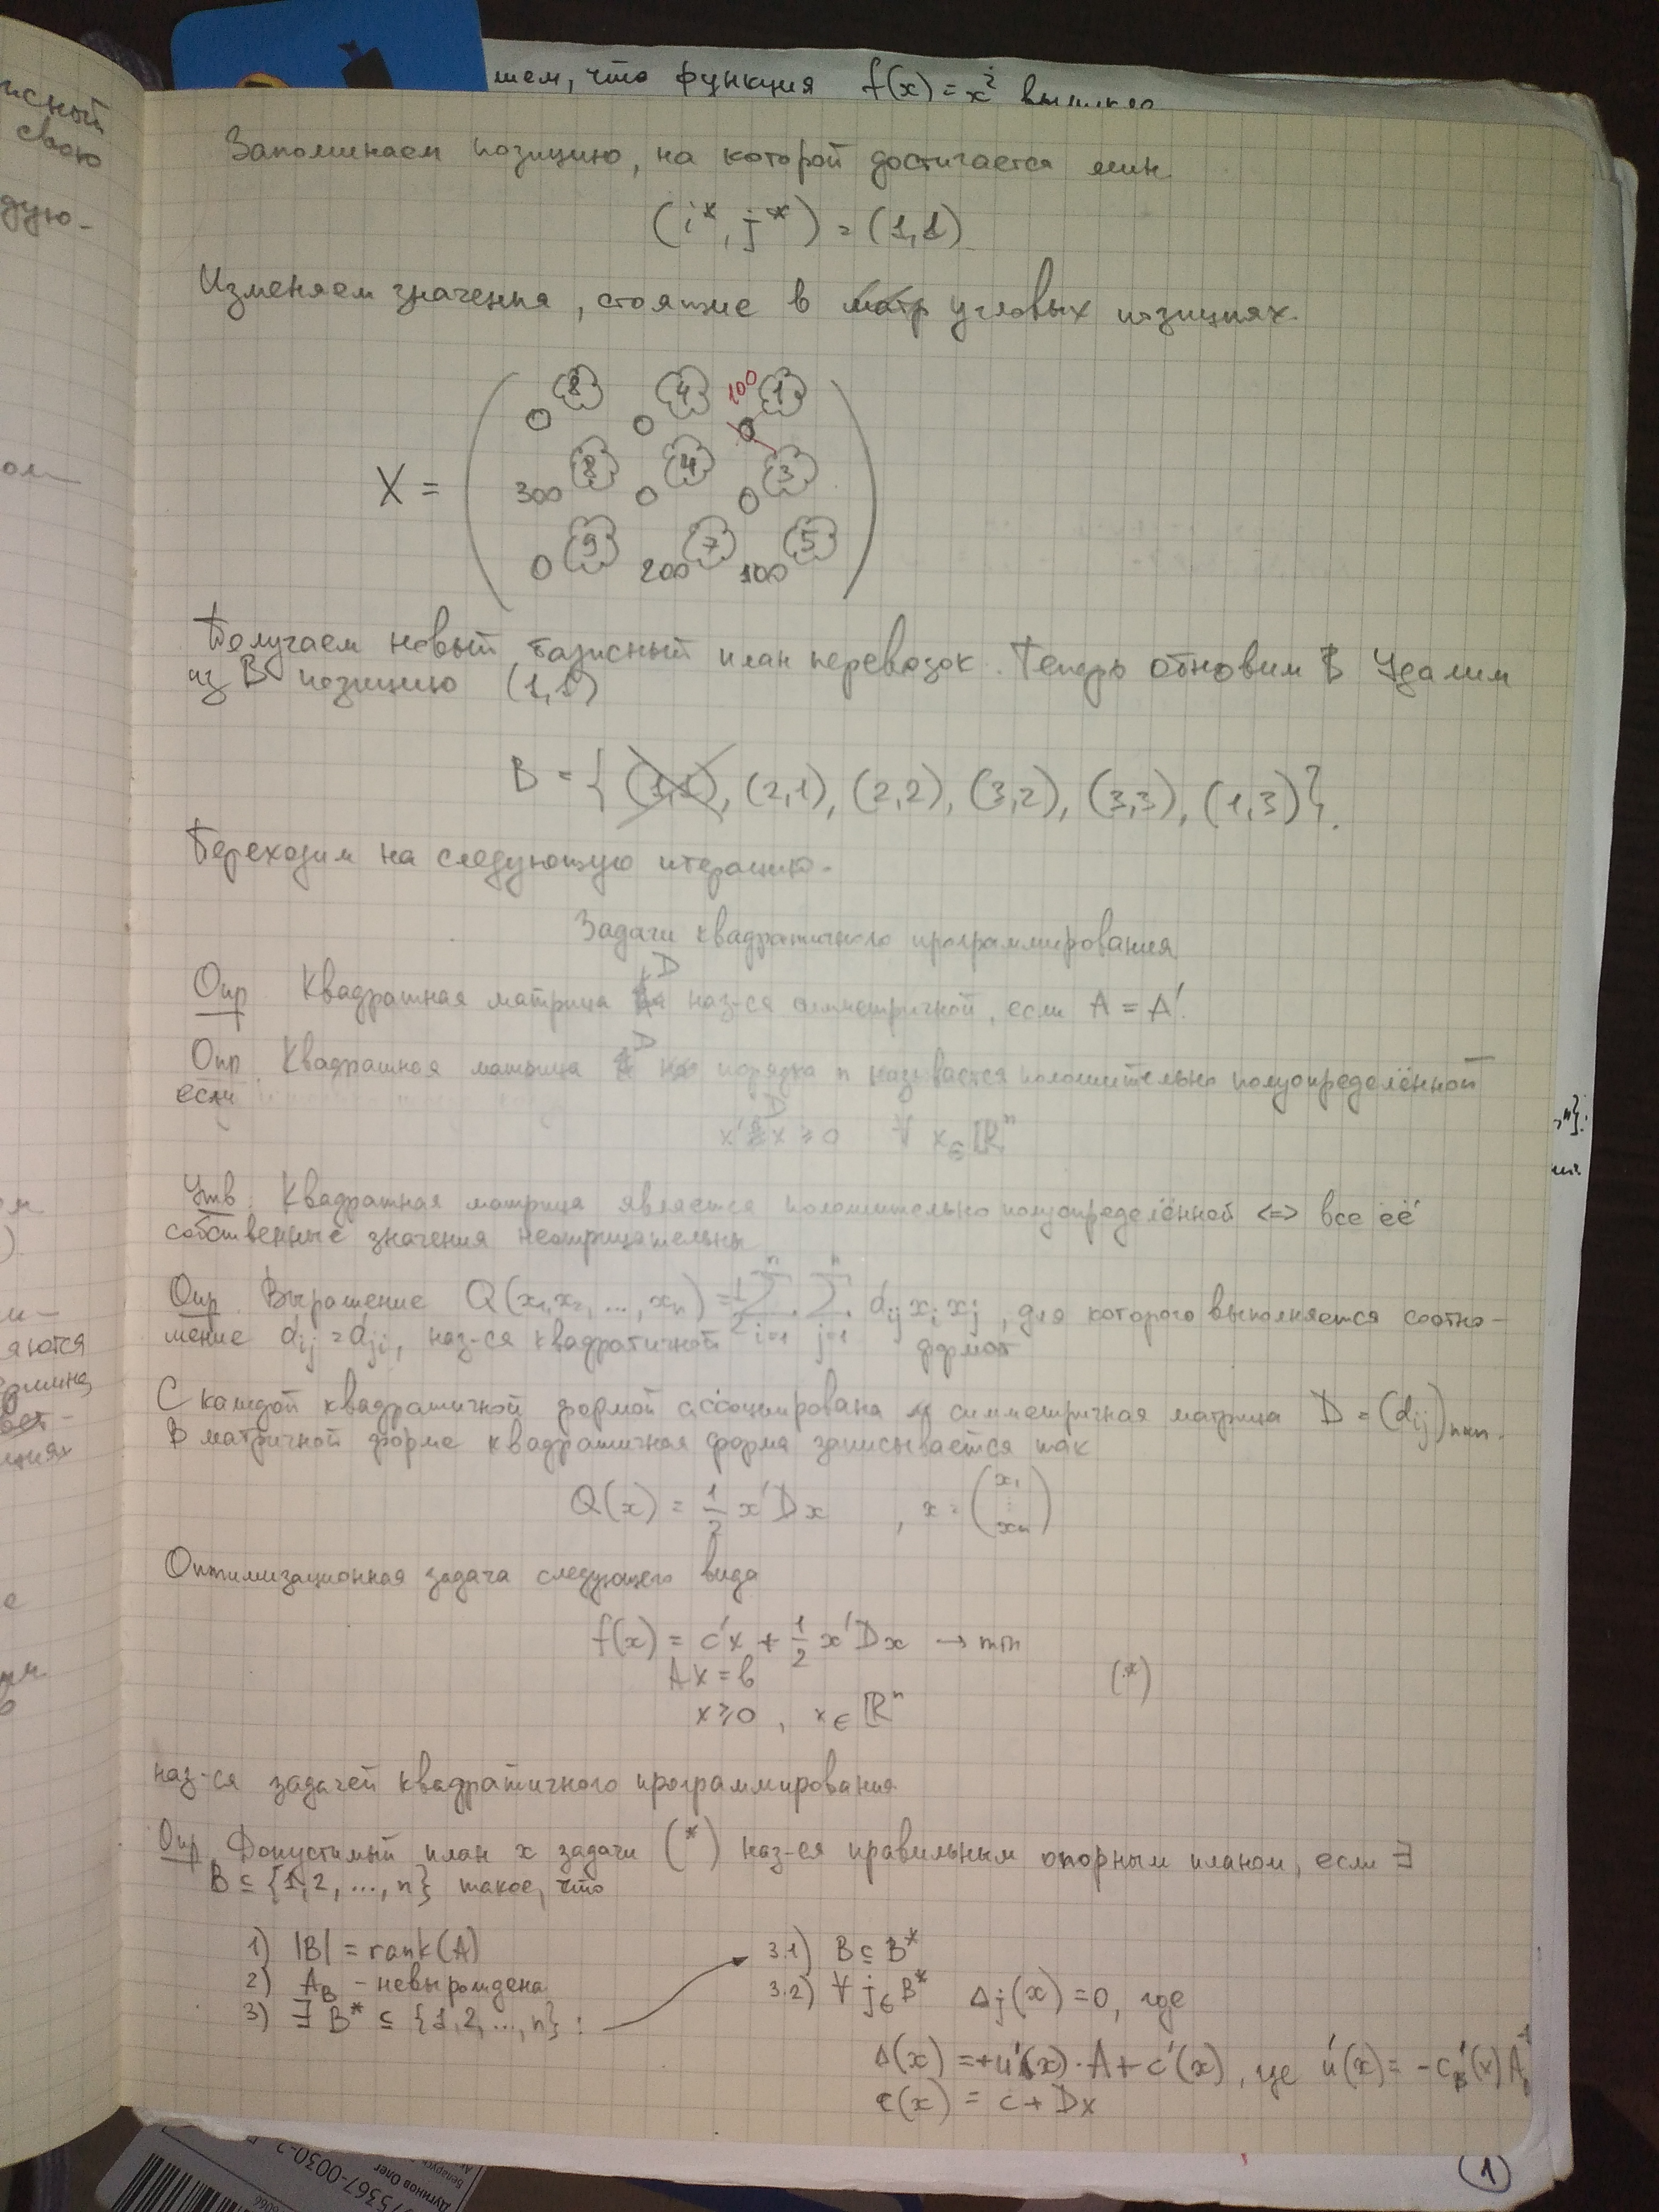 шем, что функция f(x) = x² выпукла
Запоминаем позицию, на которой достигается мин.
(i*, j*) = (1,1)
Изменяем значения, стоящие в матр угловых позициях.
0 8 0 4 0 100 1
X = 300 8 0 4 0 3
0 9 200 7 100 5
Получаем новый базисный план перевозок. Теперь обновим B Удалим
из B позицию (1,1)
B = { (1,1), (2,1), (2,2), (3,2), (3,3), (1,3)}.
Переходим на следующую итерацию.
Задачи квадратичного программирования
Опр Квадратная матрица D наз-ся симметричной, если A = A'.
Опр. Квадратная матрица D порядка n называется положительно полуопределённой
если
x'Dx ≥ 0 ∀ x∈ℝⁿ
Утв. Квадратная матрица является положительно полуопределённой <=> все её
собственные значения неотрицательны
Опр. Выражение Q(x₁, x₂, ..., xₙ) = 1/2 Σⁿᵢ₌₁ Σⁿⱼ₌₁ dᵢⱼ xᵢ xⱼ, для которого выполняется соотно-
шение dᵢⱼ = dⱼᵢ, наз-ся квадратичной формой
С каждой квадратичной формой ассоциирована симметричная матрица D = (dᵢⱼ)ₙₓₙ.
В матричной форме квадратичная форма записывается так
Q(x) = 1/2 x'Dx , x = (x₁ ⋮ xₙ)
Оптимизационная задача следующего вида
f(x) = c'x + 1/2 x'Dx → min
Ax = b (*)
x ≥ 0 , x∈ℝⁿ
наз-ся задачей квадратичного программирования
Опр. Допустимый план x задачи (*) наз-ся правильным опорным планом, если ∃
B ⊆ {1, 2, ..., n} такое, что
1) |B| = rank(A)
2) A_B - невырождена
3) ∃ B* ⊆ {1, 2, ..., n} :
3.1) B ⊆ B*
3.2) ∀ j∈B* Δj(x) = 0, где
Δ(x) = +u'(x)·A + c'(x), где u'(x) = -c'_B(x) A_B⁻¹
c(x) = c + Dx
1